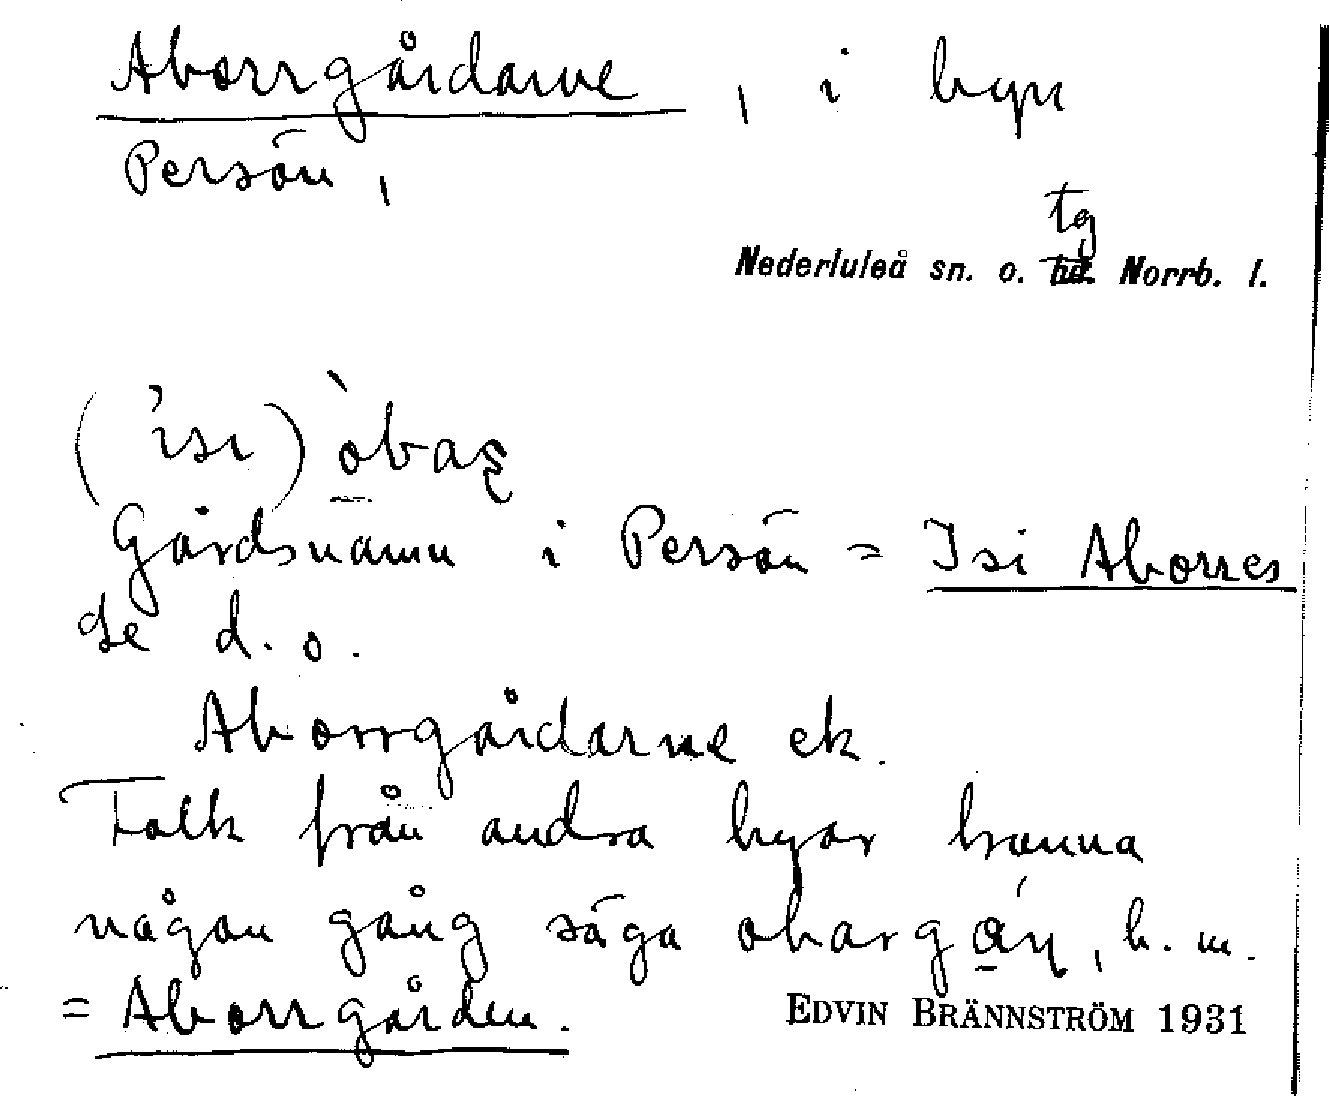 Aborrgårdarne, i byn
Persön,
tg
Nederluleå sn. o. hd. Norrb. l.
('isi) òbaʂ
Gårdsnamn i Persön = Isi Aborres
Se d. o.
Aborrgårdarne ek.
Folk från andra byar kunna
någon gång säga obargáɳ, b. m.
= Aborrgården.
EDVIN BRÄNNSTRÖM 1931